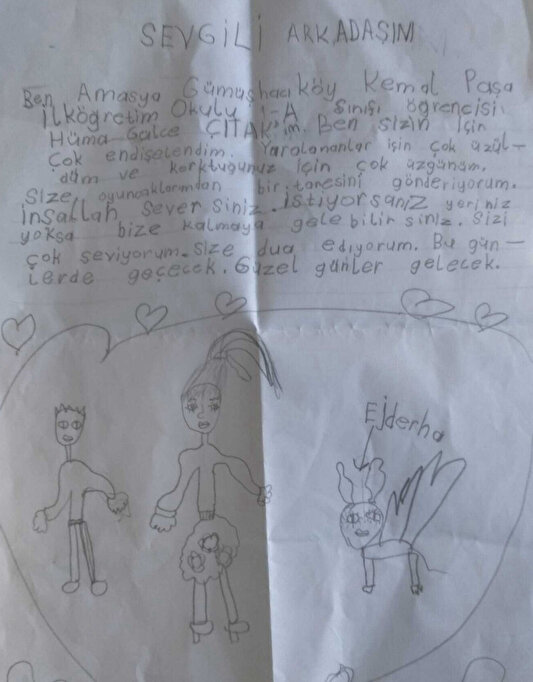 SEVGİLİ ARKADAŞIM
Ben Amasya Gümüşhacıköy Kemal Paşa
İlköğretim Okulu 1-A sınıfı öğrencisi
Hüma Gülce ÇITAK'ım. Ben sizin için
çok endişelendim. Yaralananlar için çok üzül-
düm ve korktuğunuz için çok üzgünüm.
Size oyuncaklarımdan bir tanesini gönderiyorum.
İnşallah sever siniz. İstiyorsanız yeriniz
yoksa bize kalmaya gele bilir siniz. Sizi
çok seviyorum. Size dua ediyorum. Bu gün-
lerde geçecek. Güzel günler gelecek.
Ejderha